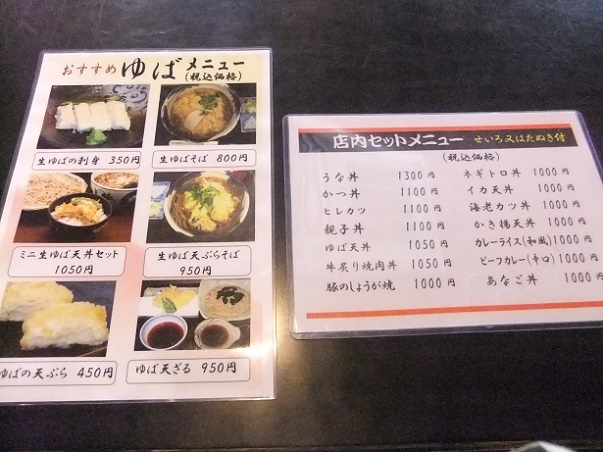 おすすめ ゆば メニュー
(税込価格)
生ゆばの刺身 350円
生ゆばそば 800円
ミニ生ゆば天丼セット
1050円
生ゆば天ぷらそば
950円
ゆばの天ぷら 450円
ゆば天ざる 950円
店内セットメニュー せいろ又はたぬき付
(税込価格)
うな丼 1300円
かつ丼 1100円
ヒレカツ 1100円
親子丼 1100円
ゆば天丼 1050円
牛炙り焼肉丼 1050円
豚のしょうが焼 1000円
ネギトロ丼 1000円
イカ天丼 1000円
海老カツ丼 1000円
かき揚天丼 1000円
カレーライス(和風) 1000円
ビーフカレー(辛口) 1000円
あなご丼 1000円